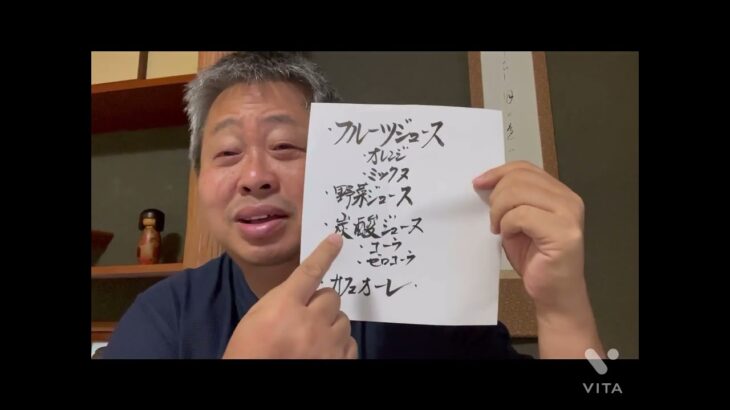 ・フルーツジュース
・オレンジ
・ミックス
・野菜ジュース
・炭酸ジュース
・コーラ
・ゼロコーラ
・カフェオーレ・
VITA